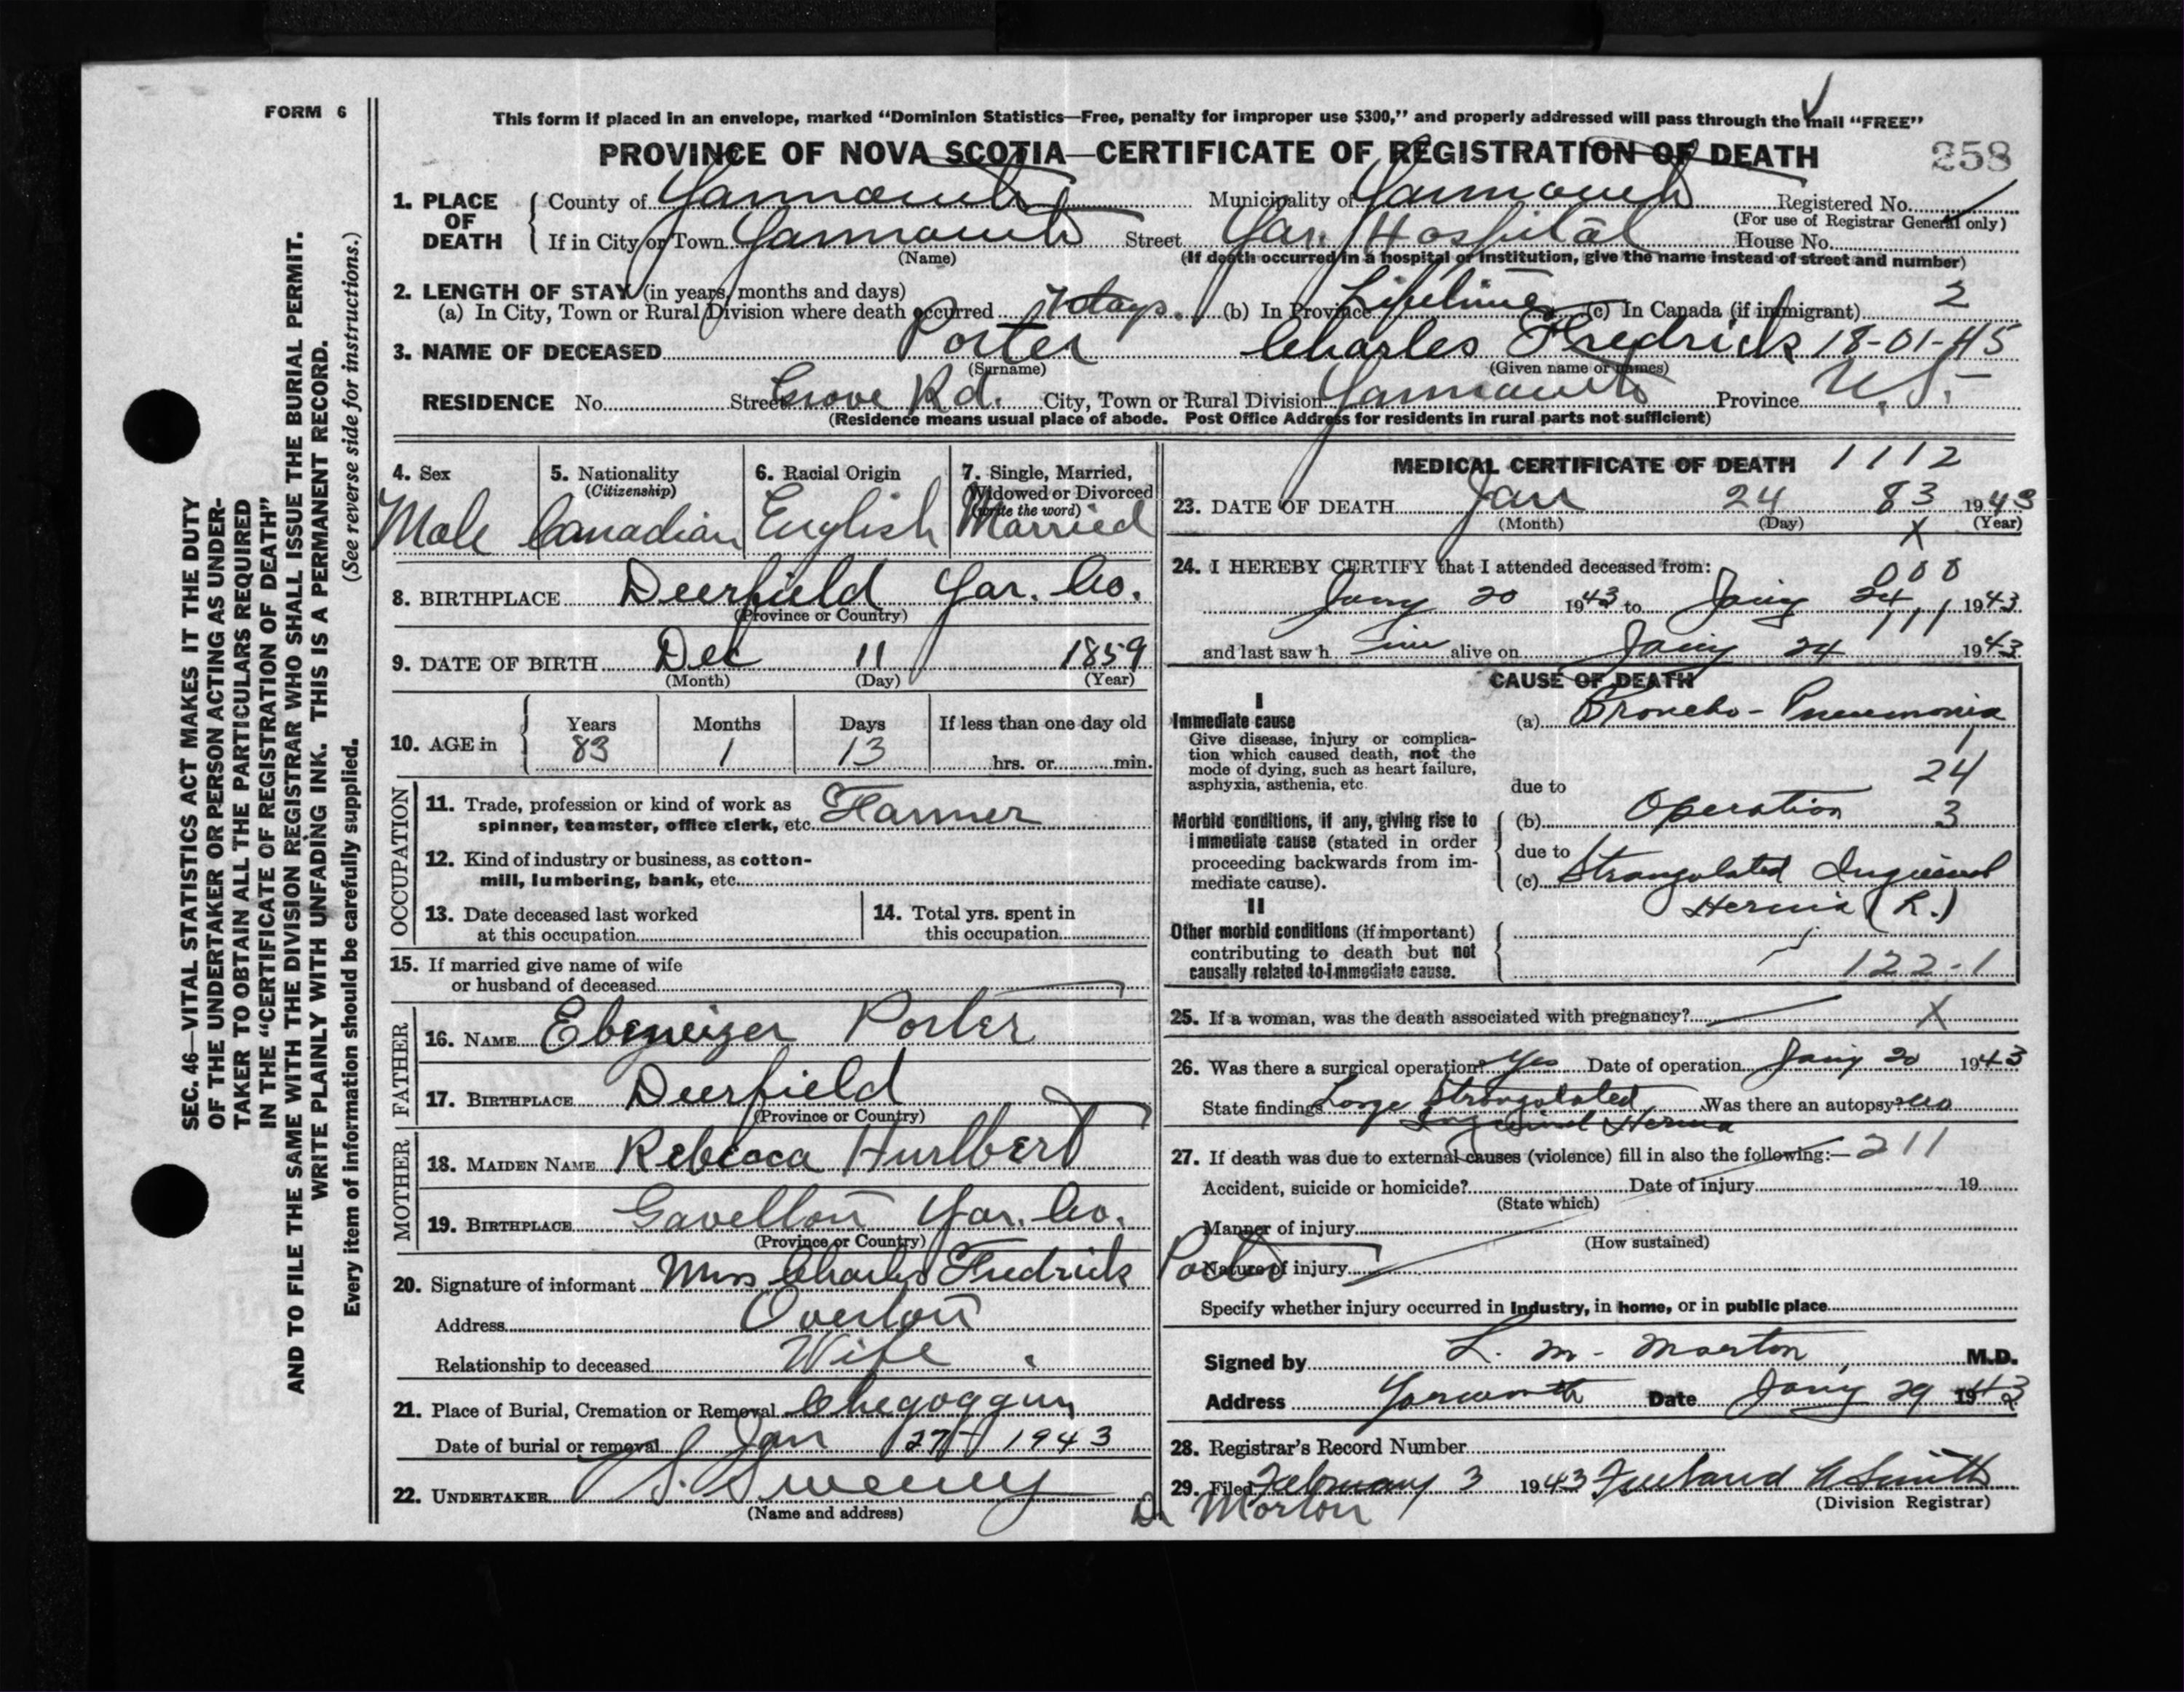 FORM 6
This form if placed in an envelope, marked “Dominion Statistics—Free, penalty for improper use $300,” and properly addressed will pass through the mail “FREE”
PROVINCE OF NOVA SCOTIA—CERTIFICATE OF REGISTRATION OF DEATH 258
1. PLACE OF DEATH
County of Yarmouth Municipality of Yarmouth Registered No.
(For use of Registrar General only)
If in City or Town Yarmouth Street Yar. Hospital House No.
(Name) (If death occurred in a hospital or institution, give the name instead of street and number)
2. LENGTH OF STAY (in years, months and days)
(a) In City, Town or Rural Division where death occurred days. (b) In Province Lifetime (c) In Canada (if immigrant) 2
3. NAME OF DECEASED Porter Charles Fredrick 18-01-45
(Surname) (Given name or names)
RESIDENCE No. Street Grove Rd. City, Town or Rural Division Yarmouth Province N.S.
(Residence means usual place of abode. Post Office Address for residents in rural parts not sufficient)
4. Sex 5. Nationality (Citizenship) 6. Racial Origin 7. Single, Married, Widowed or Divorced (write the word)
Male Canadian English Married
8. BIRTHPLACE Deerfield Yar. Co.
(Province or Country)
9. DATE OF BIRTH Dec 11 1859
(Month) (Day) (Year)
10. AGE in
Years Months Days If less than one day old
83 1 13 hrs. or min.
OCCUPATION
11. Trade, profession or kind of work as
spinner, teamster, office clerk, etc. Farmer
12. Kind of industry or business, as cotton-
mill, lumbering, bank, etc.
13. Date deceased last worked
at this occupation
14. Total yrs. spent in
this occupation
15. If married give name of wife
or husband of deceased
FATHER
16. NAME Ebeneizer Porter
17. BIRTHPLACE Deerfield
(Province or Country)
MOTHER
18. MAIDEN NAME Rebecca Hurlbert
19. BIRTHPLACE Gavelton Yar. Co.
(Province or Country)
20. Signature of informant Mrs Charles Fredrick Porter
Address Overton
Relationship to deceased Wife
21. Place of Burial, Cremation or Removal Chegoggin
Date of burial or removal Jan 27 1943
22. UNDERTAKER S. Sweeny
(Name and address)
MEDICAL CERTIFICATE OF DEATH 1112
23. DATE OF DEATH Jan 24 83 1943
(Month) (Day) X (Year)
24. I HEREBY CERTIFY that I attended deceased from: 000
Jany 20 1943 to Jany 24 1943
111
and last saw him alive on Jany 24 1943
CAUSE OF DEATH
I
Immediate cause (a) Broncho-Pneumonia
Give disease, injury or complica-
tion which caused death, not the
mode of dying, such as heart failure,
asphyxia, asthenia, etc.
24
due to
Morbid conditions, if any, giving rise to (b) Operation 3
immediate cause (stated in order due to
proceeding backwards from im-
mediate cause). (c) Strangulated Inguinal
Hernia (R.)
II
Other morbid conditions (if important)
contributing to death but not
causally related to immediate cause. 122-1
25. If a woman, was the death associated with pregnancy? X
26. Was there a surgical operation? Yes Date of operation Jany 20 1943
State findings Large Strangulated Was there an autopsy? no
Inguinal Hernia
27. If death was due to external causes (violence) fill in also the following:— 211
Accident, suicide or homicide? Date of injury 19
(State which)
Manner of injury
(How sustained)
Nature of injury
Specify whether injury occurred in industry, in home, or in public place
Signed by L. M. Morton M.D.
Address Yarmouth Date Jany 29 1943
28. Registrar's Record Number
29. Filed February 3 1943 Smith
(Division Registrar)
Dr Morton
SEC. 46—VITAL STATISTICS ACT MAKES IT THE DUTY
OF THE UNDERTAKER OR PERSON ACTING AS UNDER-
TAKER TO OBTAIN ALL THE PARTICULARS REQUIRED
IN THE “CERTIFICATE OF REGISTRATION OF DEATH”
AND TO FILE THE SAME WITH THE DIVISION REGISTRAR WHO SHALL ISSUE THE BURIAL PERMIT.
WRITE PLAINLY WITH UNFADING INK. THIS IS A PERMANENT RECORD.
Every item of information should be carefully supplied. (See reverse side for instructions.)